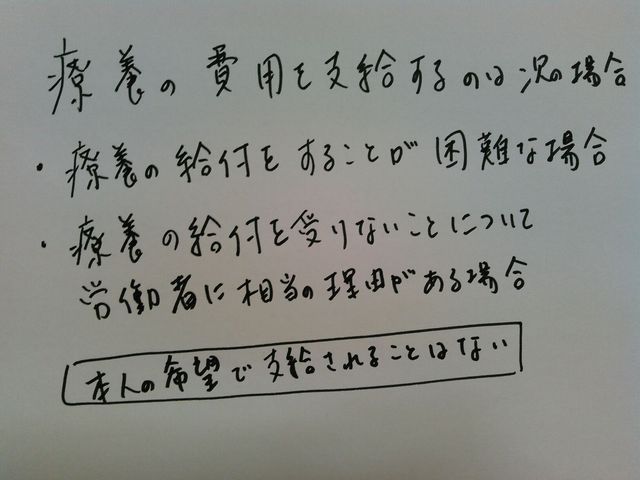 療養の費用を支給するのは次の場合
・療養の給付をすることが困難な場合
・療養の給付を受けないことについて
労働者に相当の理由がある場合
本人の希望で支給されることはない